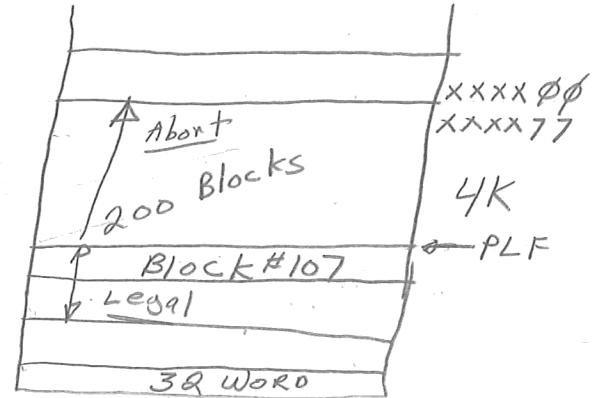 XXXX00
XXXX77
Abort
200 Blocks
4K
PLF
P
Block #107
Legal
32 WORD